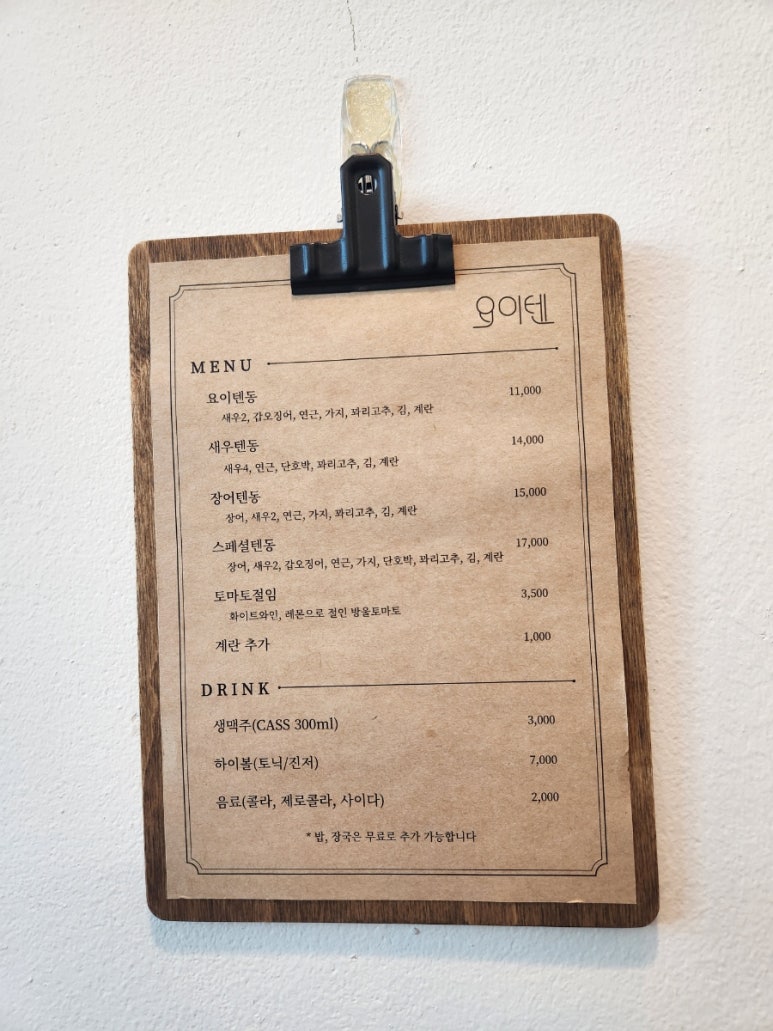 요이텐
MENU
요이텐동 11,000
새우2, 갑오징어, 연근, 가지, 꽈리고추, 김, 계란
새우텐동 14,000
새우4, 연근, 단호박, 꽈리고추, 김, 계란
장어텐동 15,000
장어, 새우2, 연근, 가지, 꽈리고추, 김, 계란
스페셜텐동 17,000
장어, 새우2, 갑오징어, 연근, 가지, 단호박, 꽈리고추, 김, 계란
토마토절임 3,500
화이트와인, 레몬으로 절인 방울토마토
계란 추가 1,000
DRINK
생맥주(CASS 300ml) 3,000
하이볼(토닉/진저) 7,000
음료(콜라, 제로콜라, 사이다) 2,000
* 밥, 장국은 무료로 추가 가능합니다